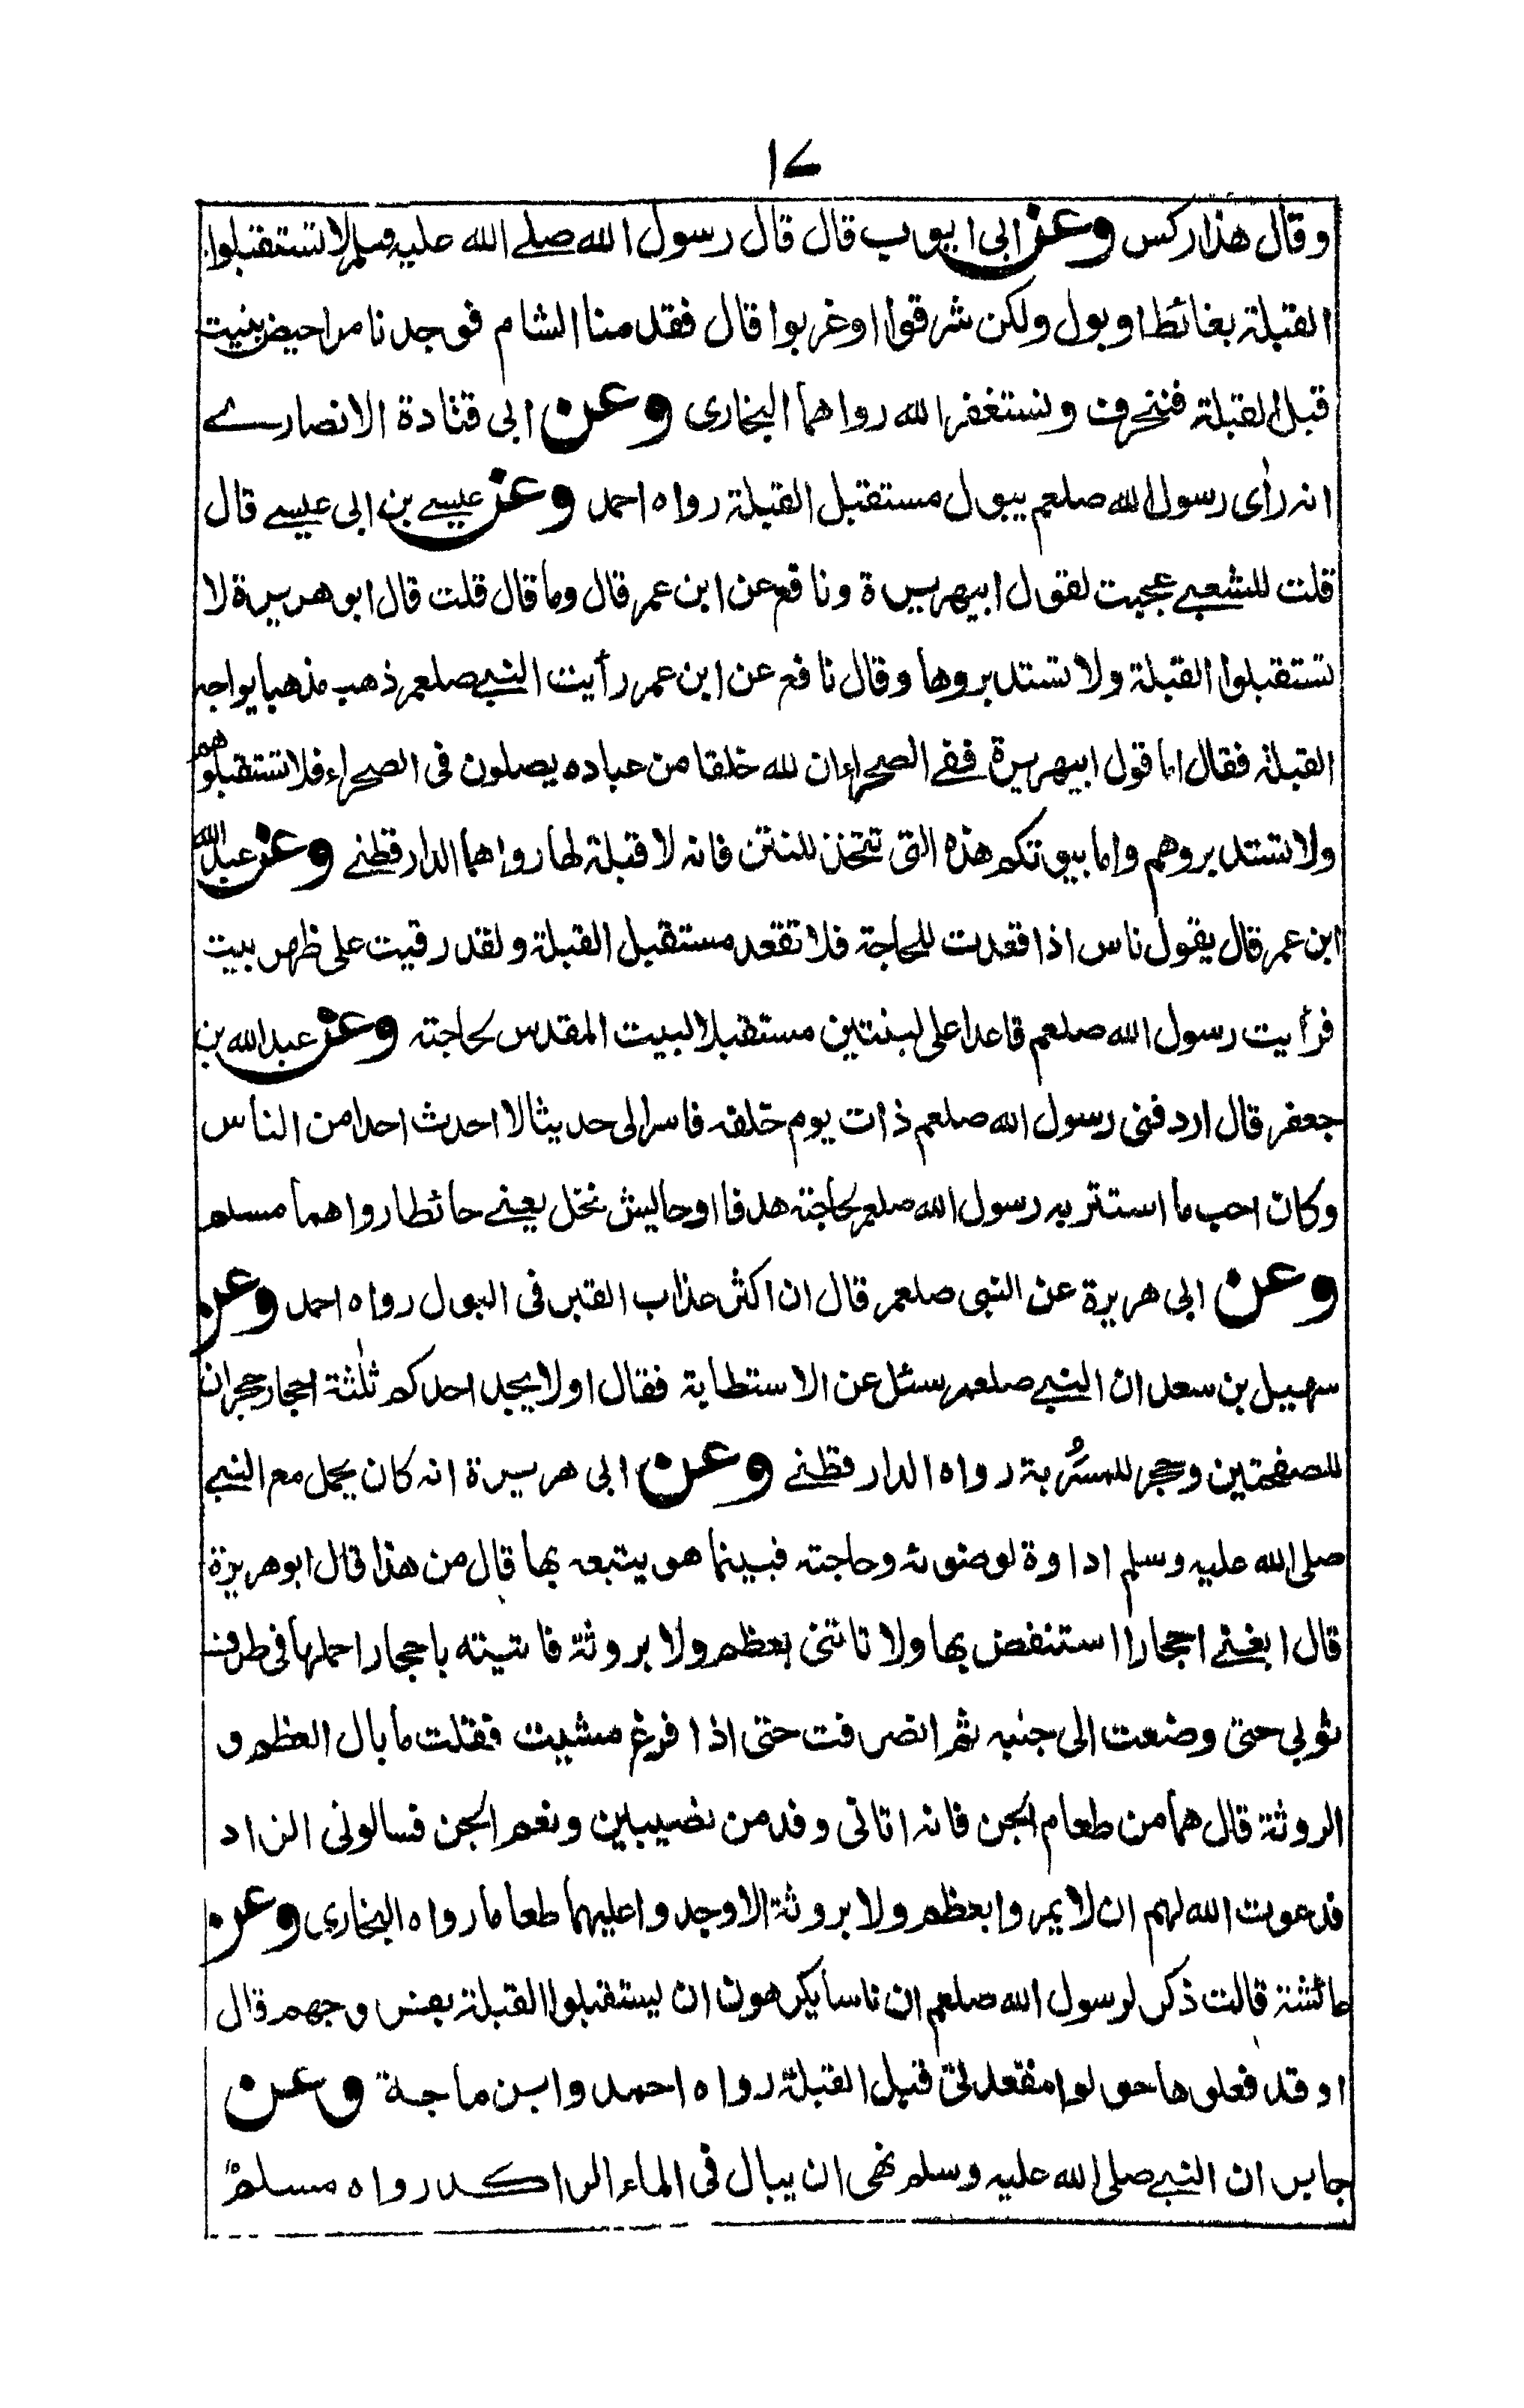 ١٧
وقال هذا ركس وعن ابى ايوب قال قال رسول الله صلے الله عليه وسلم لا تستقبلوا
القبلة بغائط او بول ولكن شرقوا او غربوا قال فقدمنا الشام فوجدنا مراحيض بنيت
قبل القبلة فننحرف ونستغفر الله رواهما البخارى وعن ابى قتادة الانصارے
انه رأى رسول الله صلعم يبول مستقبل القبلة رواه احمد وعن عيسے بن ابى عيسے قال
قلت للشعبے عجبت لقول ابيهريرة ونافع عن ابن عمر قال وما قال قلت قال ابو هريرة لا
تستقبلوا القبلة ولا تستدبروها وقال نافع عن ابن عمر رأيت النبے صلعم ذهب مذهبا يواجه
القبلة فقال اما قول ابيهريرة ففے الصحراء ان لله خلقا من عباده يصلون فى الصحراء فلا تستقبلوهم
ولا تستدبروهم واما بيوتكم هذه التى تتخذ للنتن فانه لا قبلة لها رواهما الدارقطنے وعن عبد الله
ابن عمر قال يقول ناس اذا قعدت للحاجة فلا تقعد مستقبل القبلة ولقد رقيت على ظهر بيت
فرأيت رسول الله صلعم قاعدا على لبنتين مستقبلا لبيت المقدس لحاجته وعن عبد الله بن
جعفر قال اردفنى رسول الله صلعم ذات يوم خلفه فاسر الى حديثا لا احدث احدا من الناس
وكان احب ما استتر به رسول الله صلعم لحاجته هدفا او حايش نخل يعنے حائطا رواهما مسلم
وعن ابى هريرة عن النبى صلعم قال ان اكثر عذاب القبر فى البول رواه احمد وعن
سهيل بن سعد ان النبے صلعم سئل عن الاستطابة فقال اولا يجد احدكم ثلٰثة احجار حجران
للصفحتين وحجر للمسرُبة رواه الدارقطنے وعن ابى هريرة انه كان يحمل مع النبے
صلى الله عليه وسلم اداوة لوضوئه وحاجته فبينما هو يتبعه بها قال من هذا قال ابو هريرة
قال ابغنے احجارا استنفض بها ولا تاتنى بعظم ولا بروثة فاتيته باحجار احملها فى طرف
ثوبى حتى وضعت الى جنبه ثم انصرفت حتى اذا فرغ مشيت فقلت ما بال العظم و
الروثة قال هما من طعام الجن فانه اتانى وفد من نصيبين ونعم الجن فسالونى الزاد
فدعوت الله لهم ان لا يمروا بعظم ولا بروثة الا وجدوا عليهما طعاما رواه البخارى وعن
عائشة قالت ذكر لرسول الله صلعم ان ناسا يكرهون ان يستقبلوا القبلة بفروجهم قال
او قد فعلوها حولوا مقعدتى قبل القبلة رواه احمد وابن ماجة وعن
جابر ان النبے صلى الله عليه وسلم نهى ان يبال فى الماء الراكد رواه مسلم